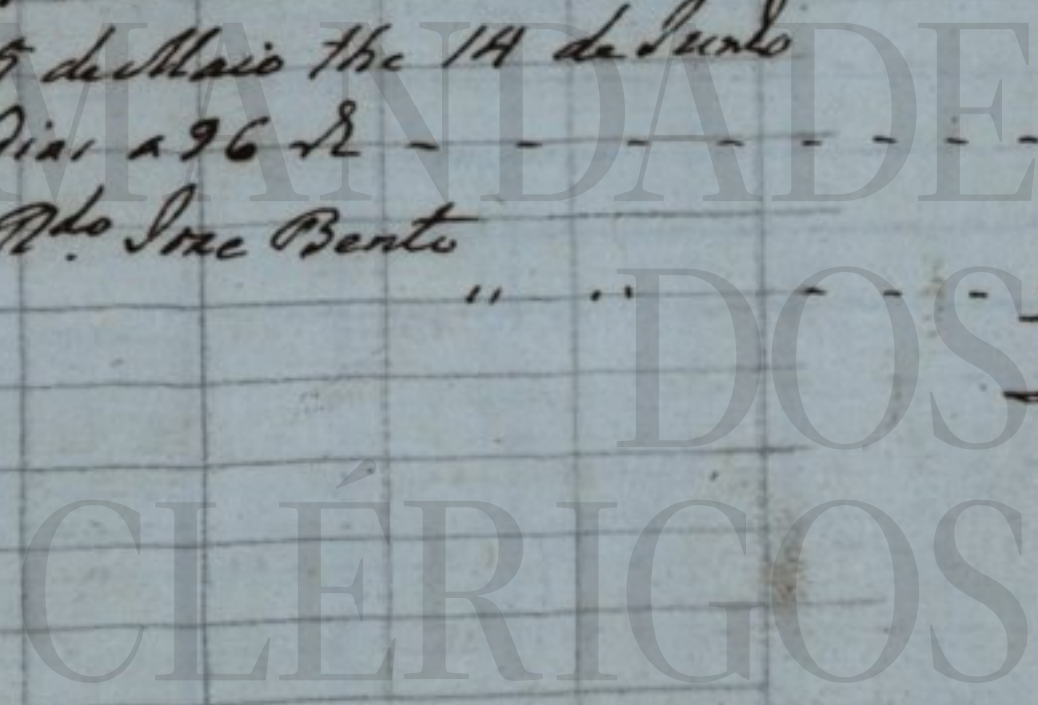 5 de Maio the 14 de Junho
Dias a 96 rs - - - - - - - -
Rdo. Joze Bento
" " - - -
MANDADE
DOS
CLÉRIGOS